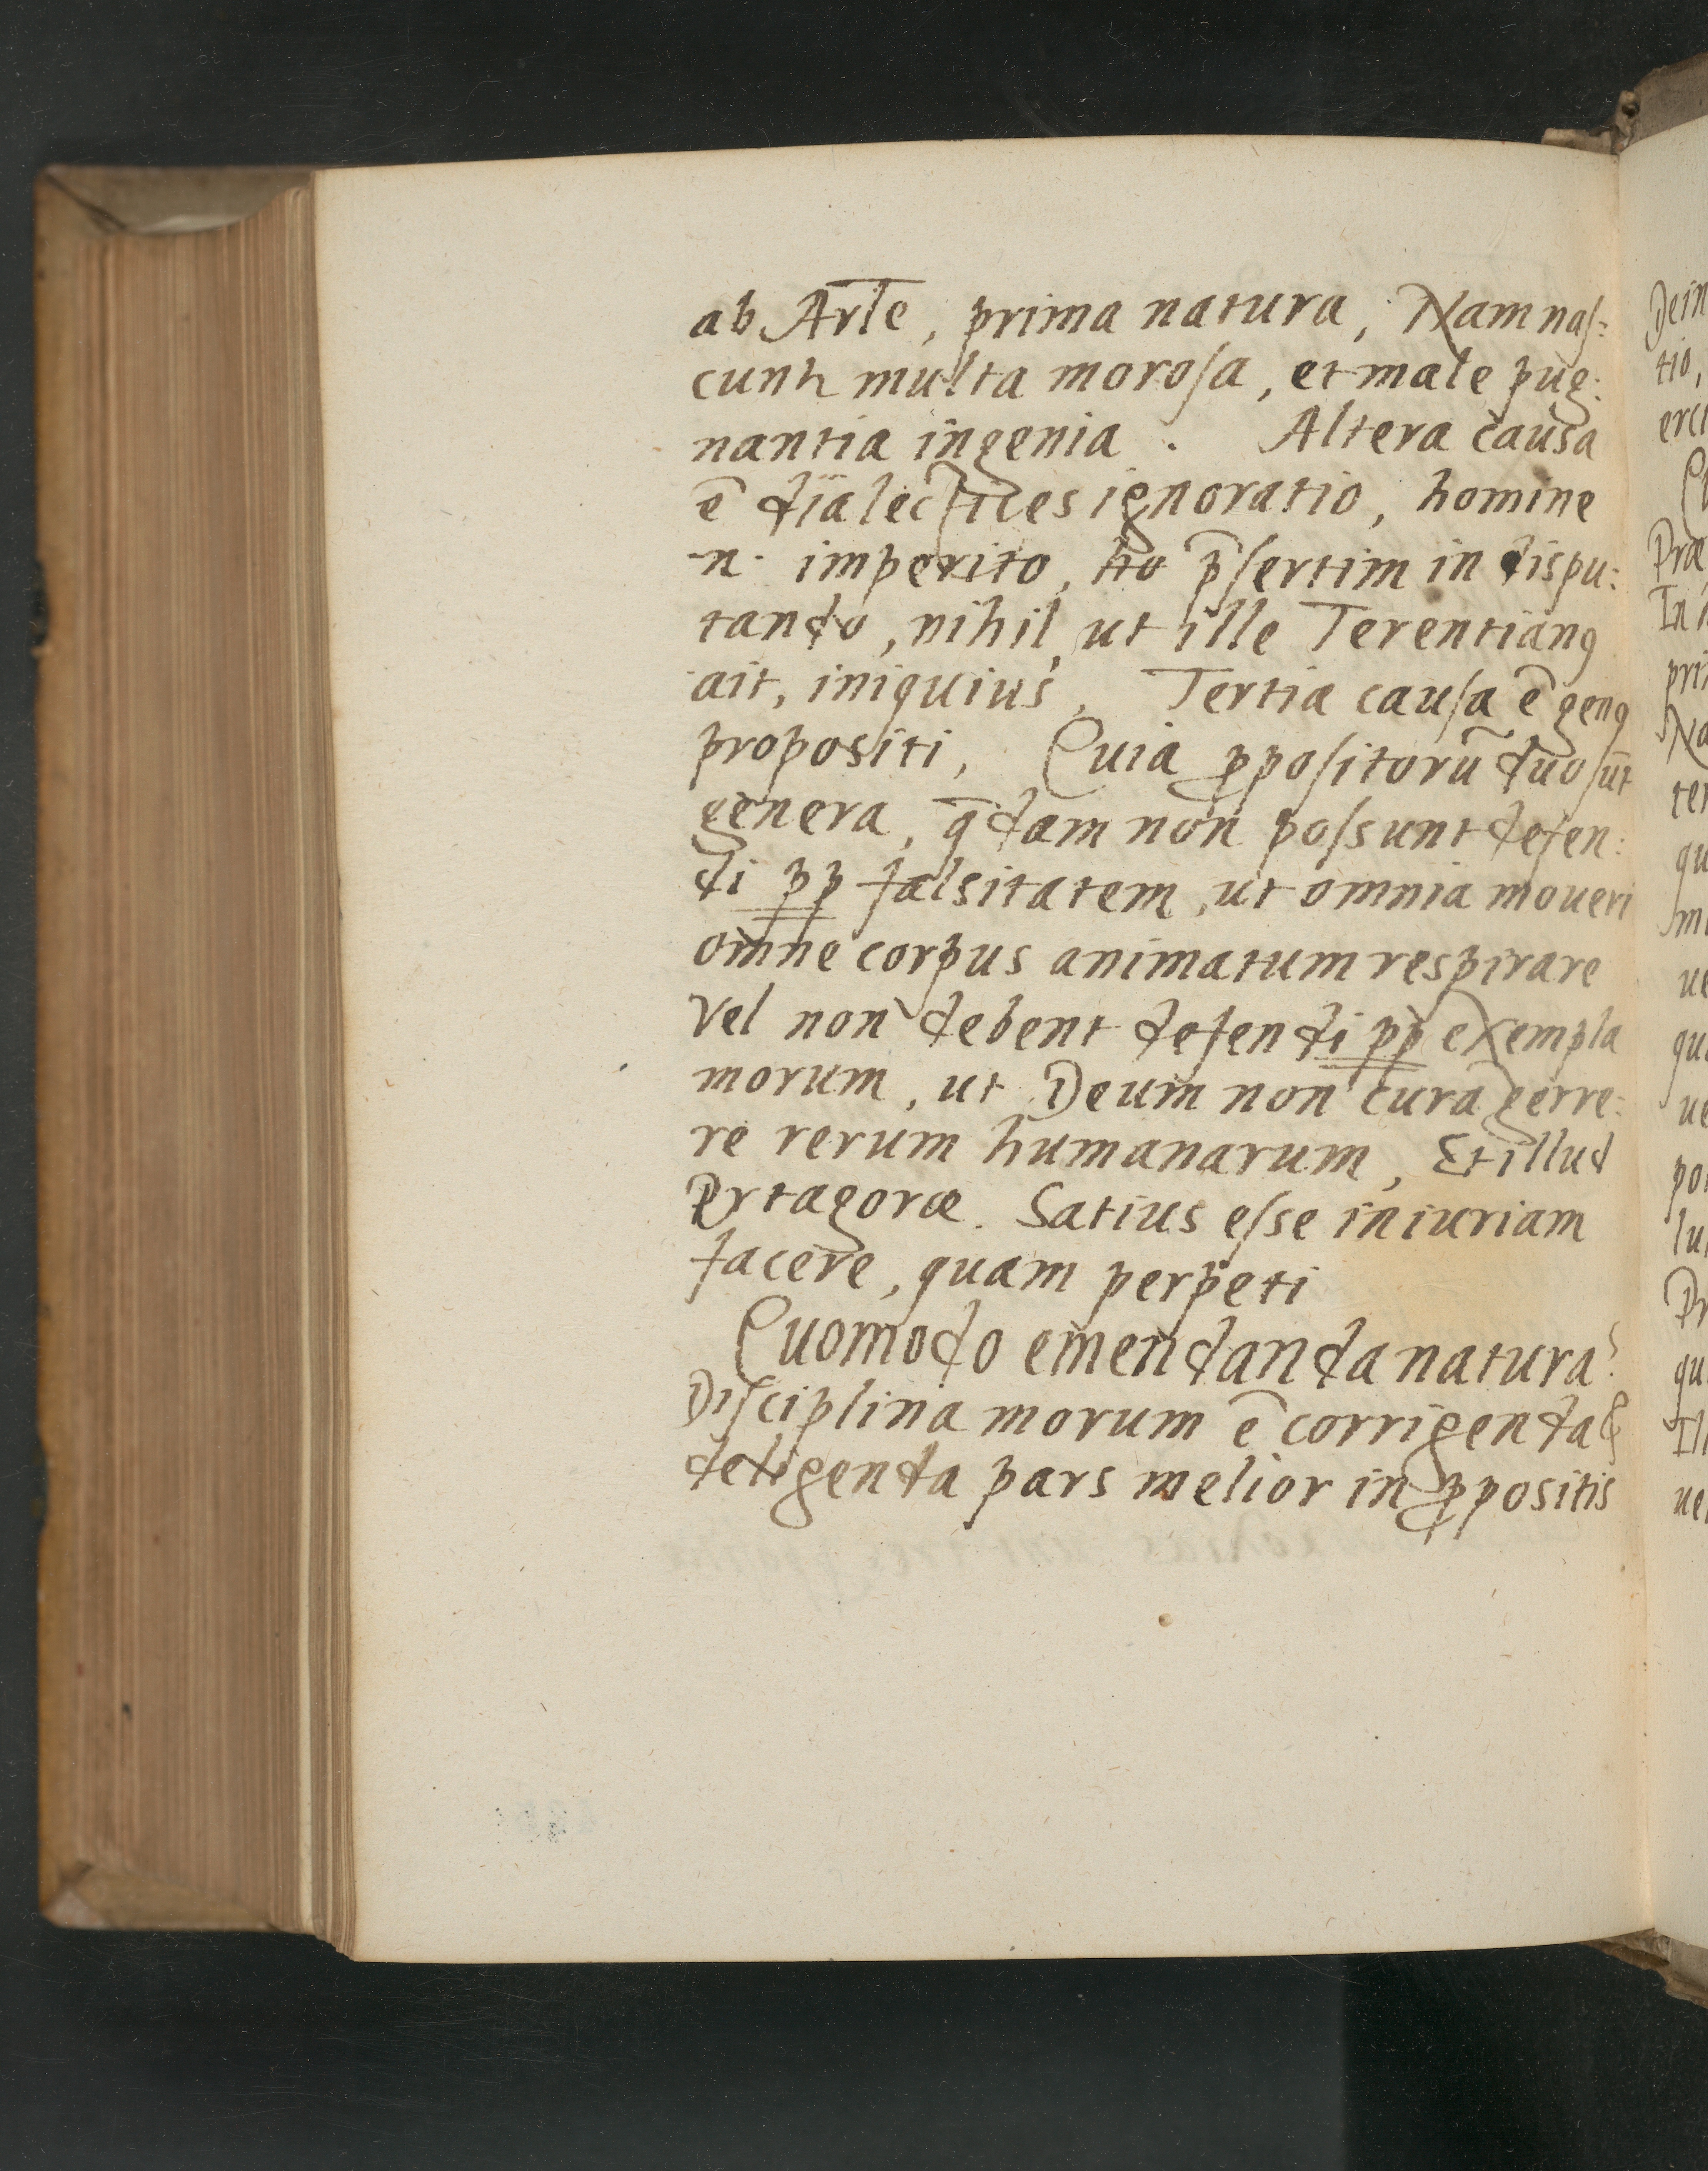 ab Arte, prima natura, Nam nas:
cuntr multa morosa, et male pug:
nantia ingenia. Altera causa
ē dialectices ignoratio, homine
n. imperito, p̄sertim in dispu:
tando, nihil, ut ille Terentianꝰ
ait, iniquius, Tertia causa ē genꝰ
propositi, Quia ꝓpositorū duo sūt
genera, q̄dam non possunt defen:
di pp falsitatem, ut omnia moueri
omne corpus animatum respirare
Vel non debent defendi pp exempla
morum, ut Deum non curā gerre:
re rerum humanarum, Et illud
Prtagoræ. Satius esse iniuriam
facere, quam perpeti
Quomodo emendanda natura?
Disciplina morum ē corrigenda &
deligenda pars melior in ꝓpositis